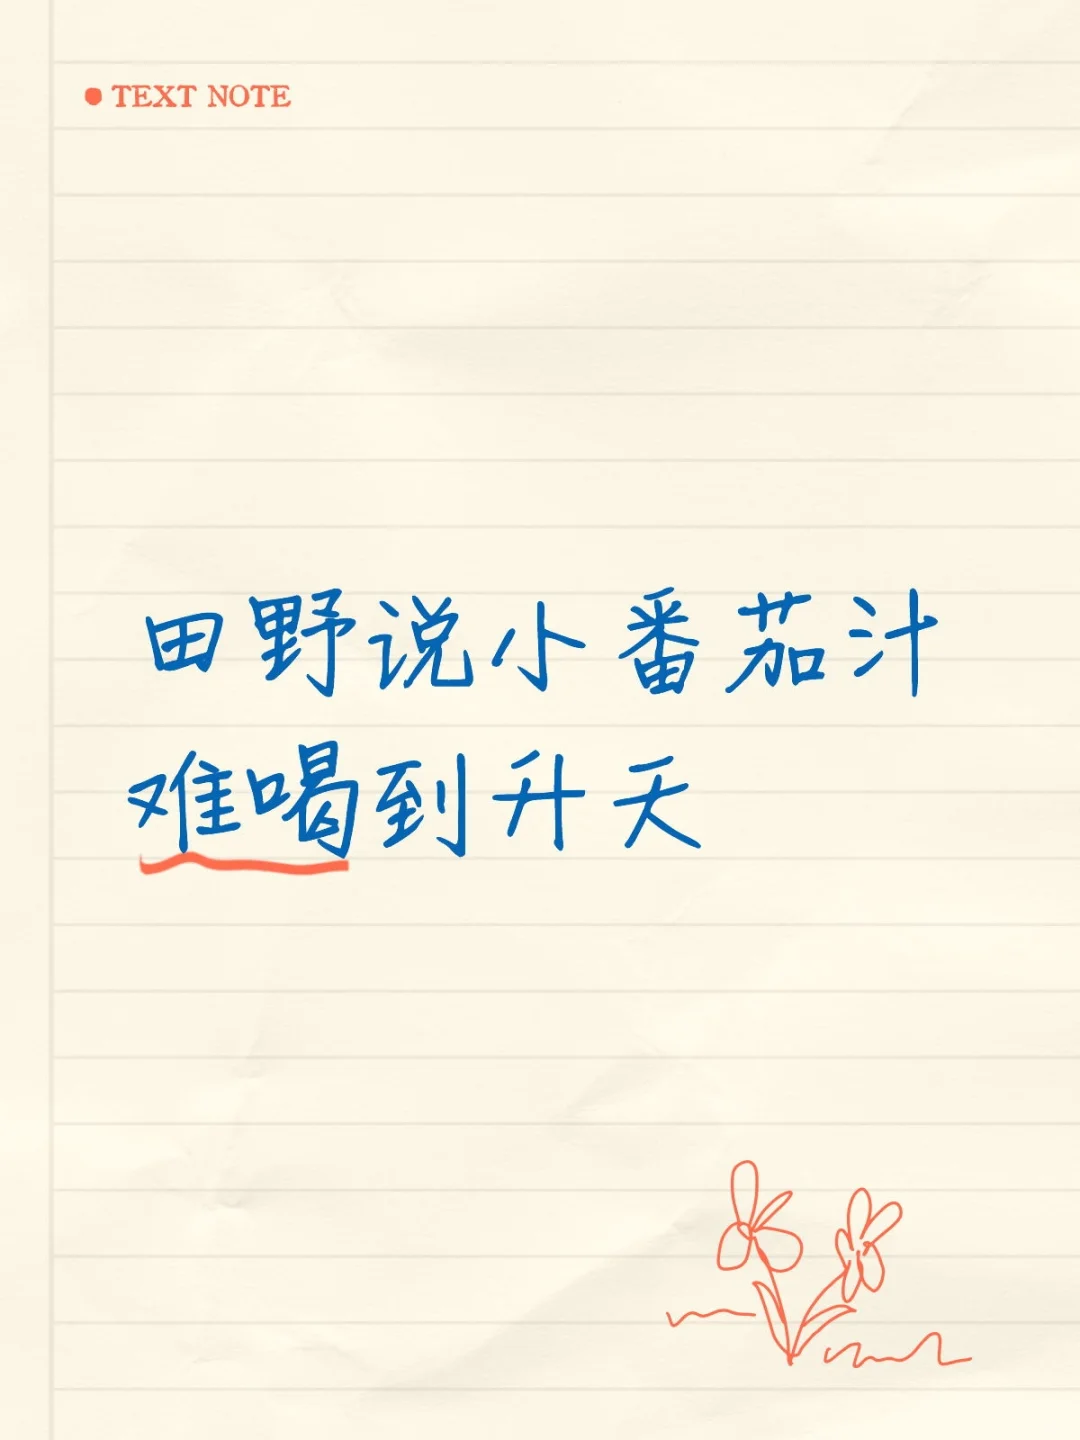 TEXT NOTE
田野说小番茄汁
难喝到升天